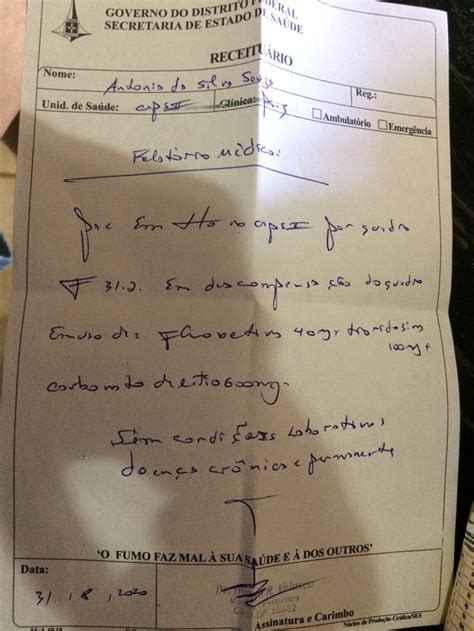 GOVERNO DO DISTRITO FEDERAL
SECRETARIA DE ESTADO DE SAÚDE
RECEITUÁRIO
Nome: Antonio da Silva
Reg.:
Unid. de Saúde: Clínica:
Ambulatório Emergência
Relatório Médico:
Pac em no por quadro
F 31.2. Em descompensação do quadro
Em uso de: 40mg,
100mg
carbonato de 600mg.
Sem condições laborativas
doença crônica e permanente
'O FUMO FAZ MAL À SUA SAÚDE E À DOS OUTROS'
Data:
31 / 8 / 2020
Velasco
Psiquiatra
Assinatura e Carimbo
Núcleo de Produção Gráfica/SES